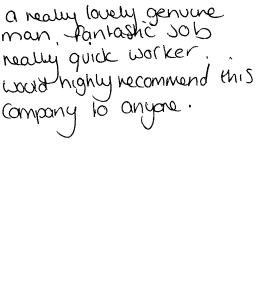 a really lovely genuine
man, fantastic job
really quick worker.
would highly recommend this
company to anyone.